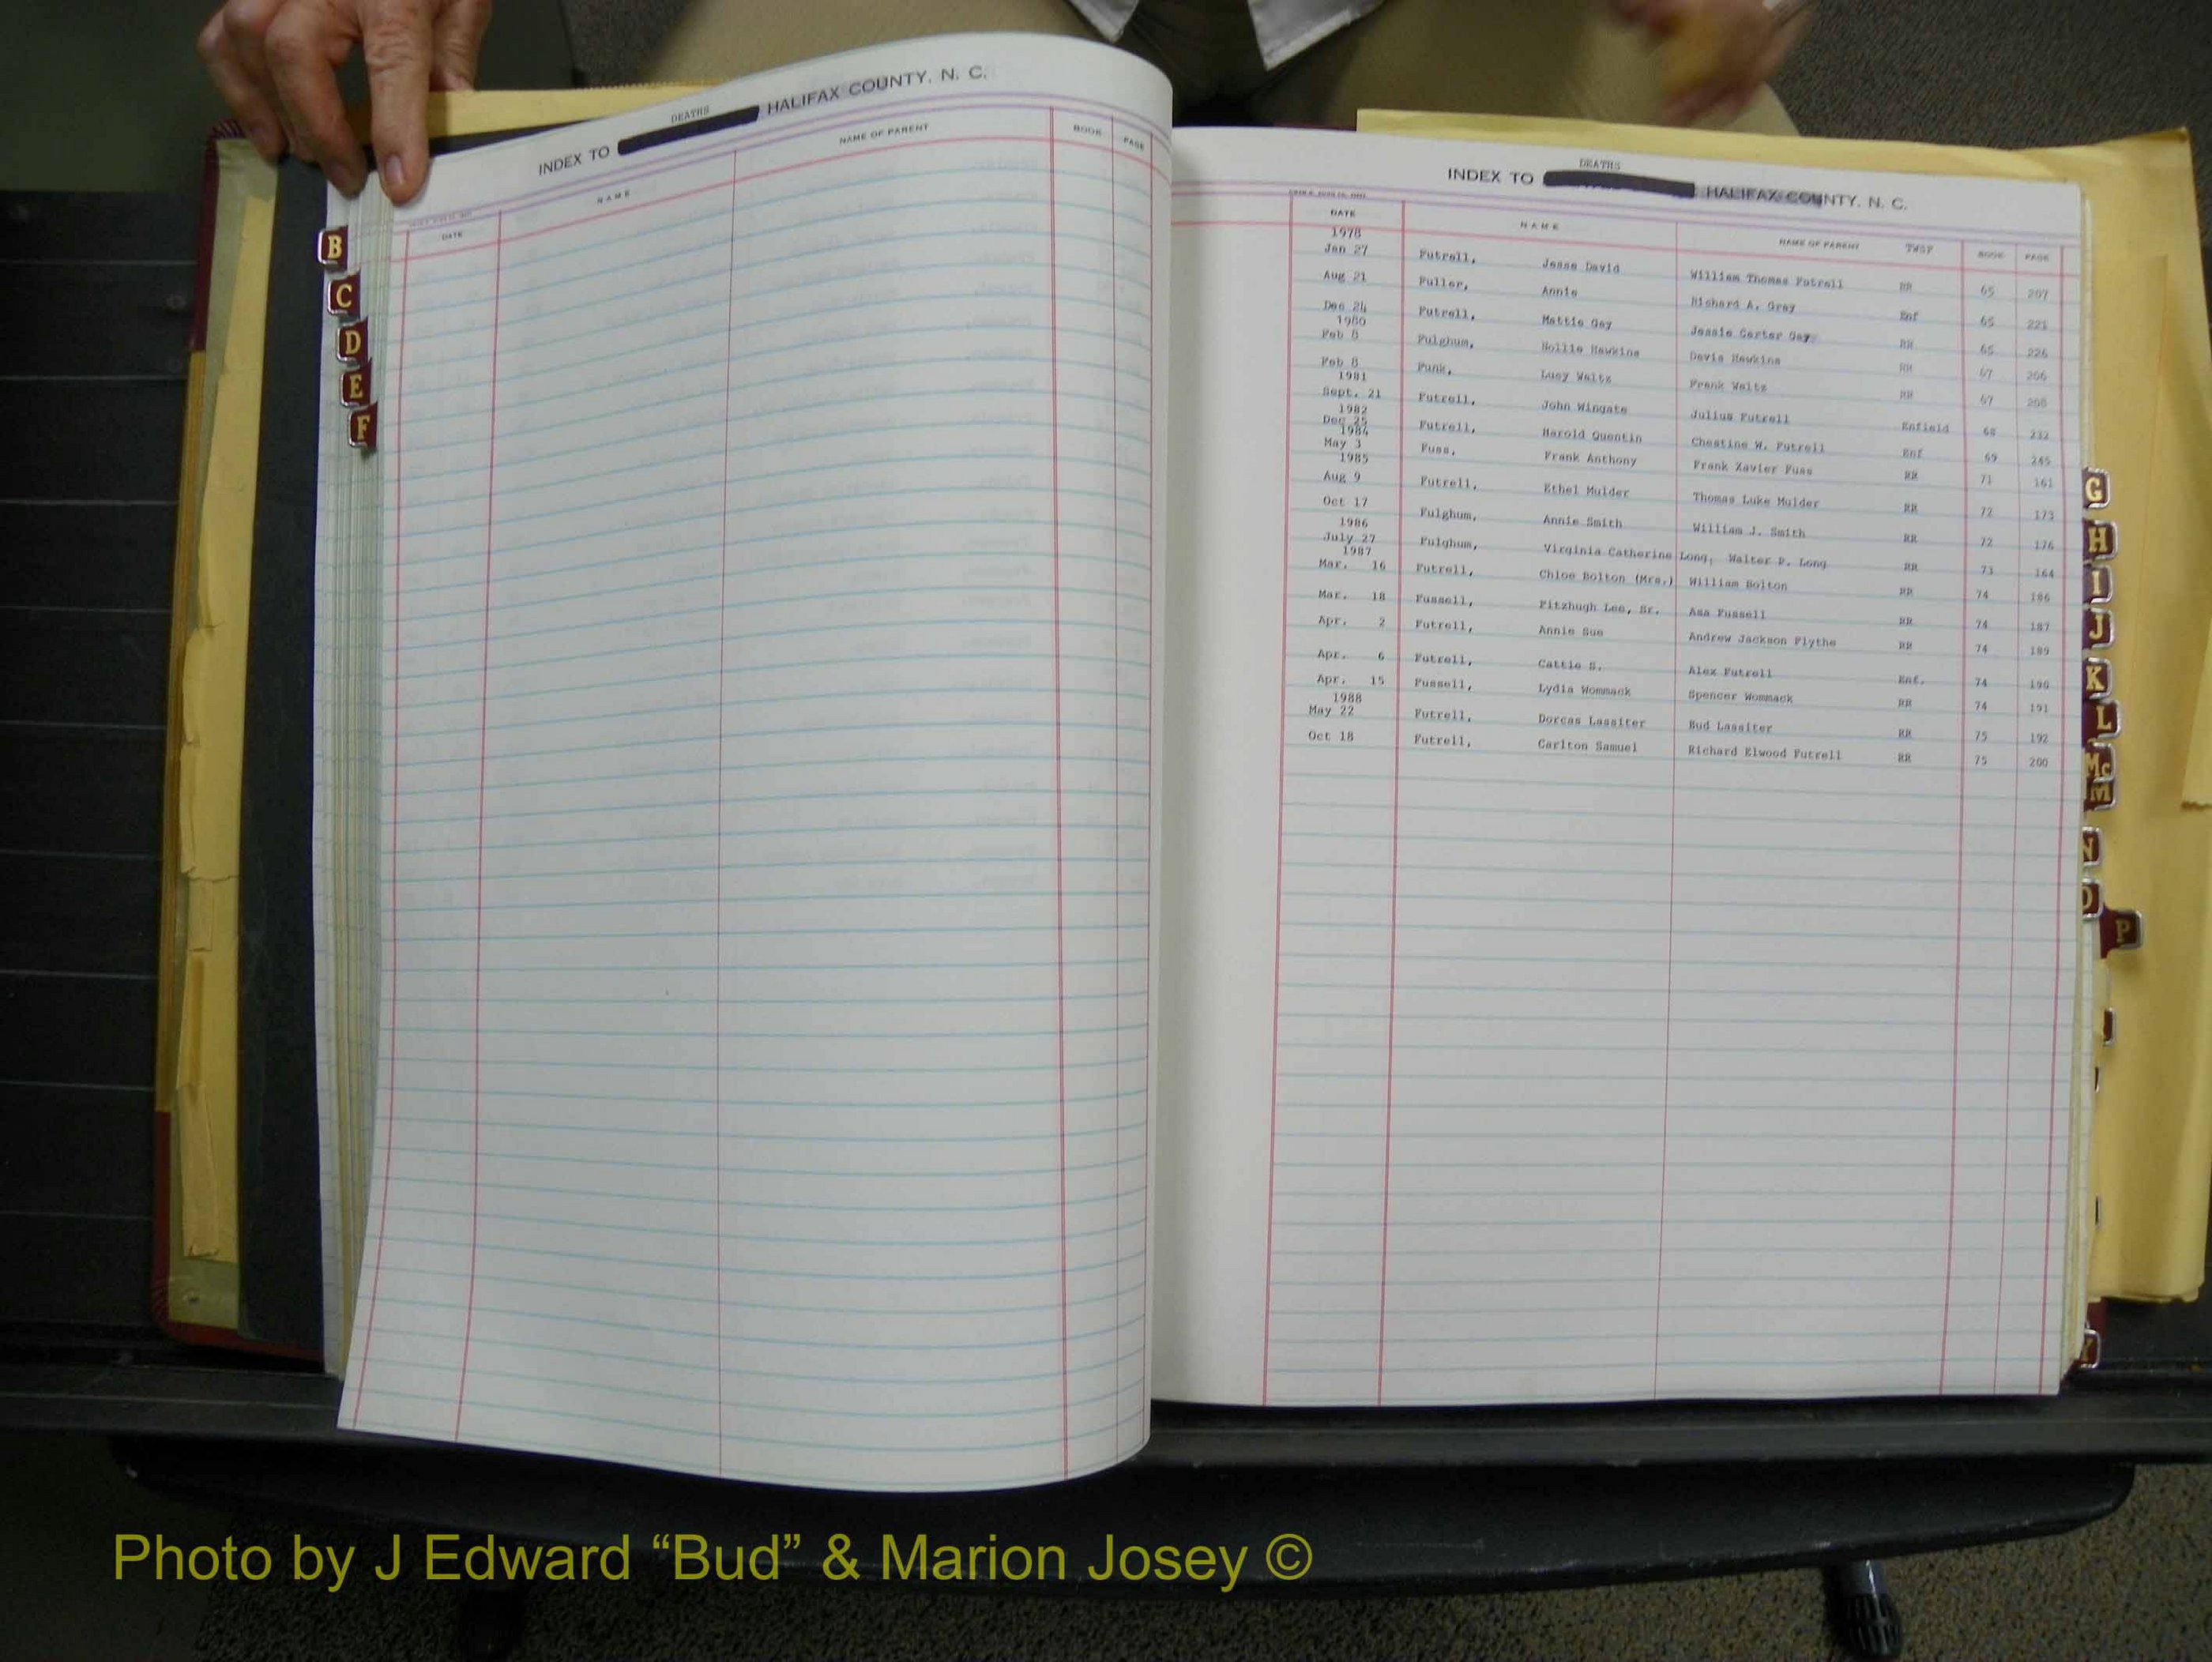 DEATHS
INDEX TO HALIFAX COUNTY, N. C.
DATE NAME NAME OF PARENT BOOK PAGE
B
C
D
E
F
DEATHS
INDEX TO HALIFAX COUNTY, N. C.
DATE NAME NAME OF PARENT TWSP BOOK PAGE
1978
Jan 27 Futrell, Jesse David William Thomas Futrell RR 65 207
Aug 21 Fuller, Annie Richard A. Gray Enf 65 221
Dec 24 Futrell, Mattie Gay Jessie Carter Gay RR 65 226
1980
Feb 8 Fulghum, Hollie Hawkins Davis Hawkins RR 67 206
Feb 8 Funk, Lucy Waltz Frank Waltz RR 67 208
1981
Sept. 21 Futrell, John Wingate Julius Futrell Enfield 68 232
1982
Dec 25 Futrell, Harold Quentin Chestine W. Futrell Enf 69 245
1984
May 3 Fuss, Frank Anthony Frank Xavier Fuss RR 71 161
1985
Aug 9 Futrell, Ethel Mulder Thomas Luke Mulder RR 72 173
Oct 17 Fulghum, Annie Smith William J. Smith RR 72 176
1986
July 27 Fulghum, Virginia Catherine Long, Walter P. Long RR 73 164
1987
Mar. 16 Futrell, Chloe Bolton (Mrs.) William Bolton RR 74 186
Mar. 18 Fussell, Fitzhugh Lee, Sr. Asa Fussell RR 74 187
Apr. 2 Futrell, Annie Sue Andrew Jackson Flythe RR 74 189
Apr. 6 Futrell, Cattie S. Alex Futrell Enf. 74 190
Apr. 15 Fussell, Lydia Wommack Spencer Wommack RR 74 191
1988
May 22 Futrell, Dorcas Lassiter Bud Lassiter RR 75 192
Oct 18 Futrell, Carlton Samuel Richard Elwood Futrell RR 75 200
G
H
I
J
K
L
Mc
M
N
O
P
Y
Photo by J Edward “Bud” & Marion Josey ©